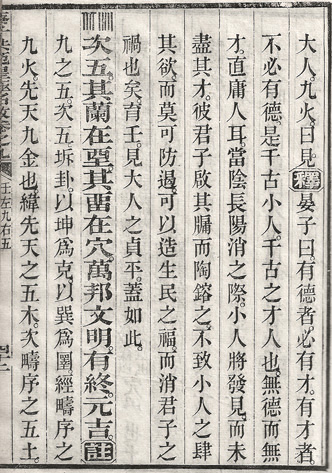 大人。九火。曰見釋晏子曰。有德者必有才。有才者
不必有德。是千古小人。千古之才人也。無德而無
才。直庸人耳。當陰長陽消之際。小人將發見。而未
盡其才。彼君子啟其牖而陶鎔之。不致小人之肆
其欲。而莫可防遏。可以造生民之福。而消君子之
禍也矣。育王。見大人之貞平蓋如此。
次五其蘭在其畱在穴。萬邦文明。有終。元吉註
九之五。次五坼卦。以坤爲克。以巽爲圍。經疇序之
九火。先天九金也。緯先天之五木。次疇序之五土
王左九右五
四十二